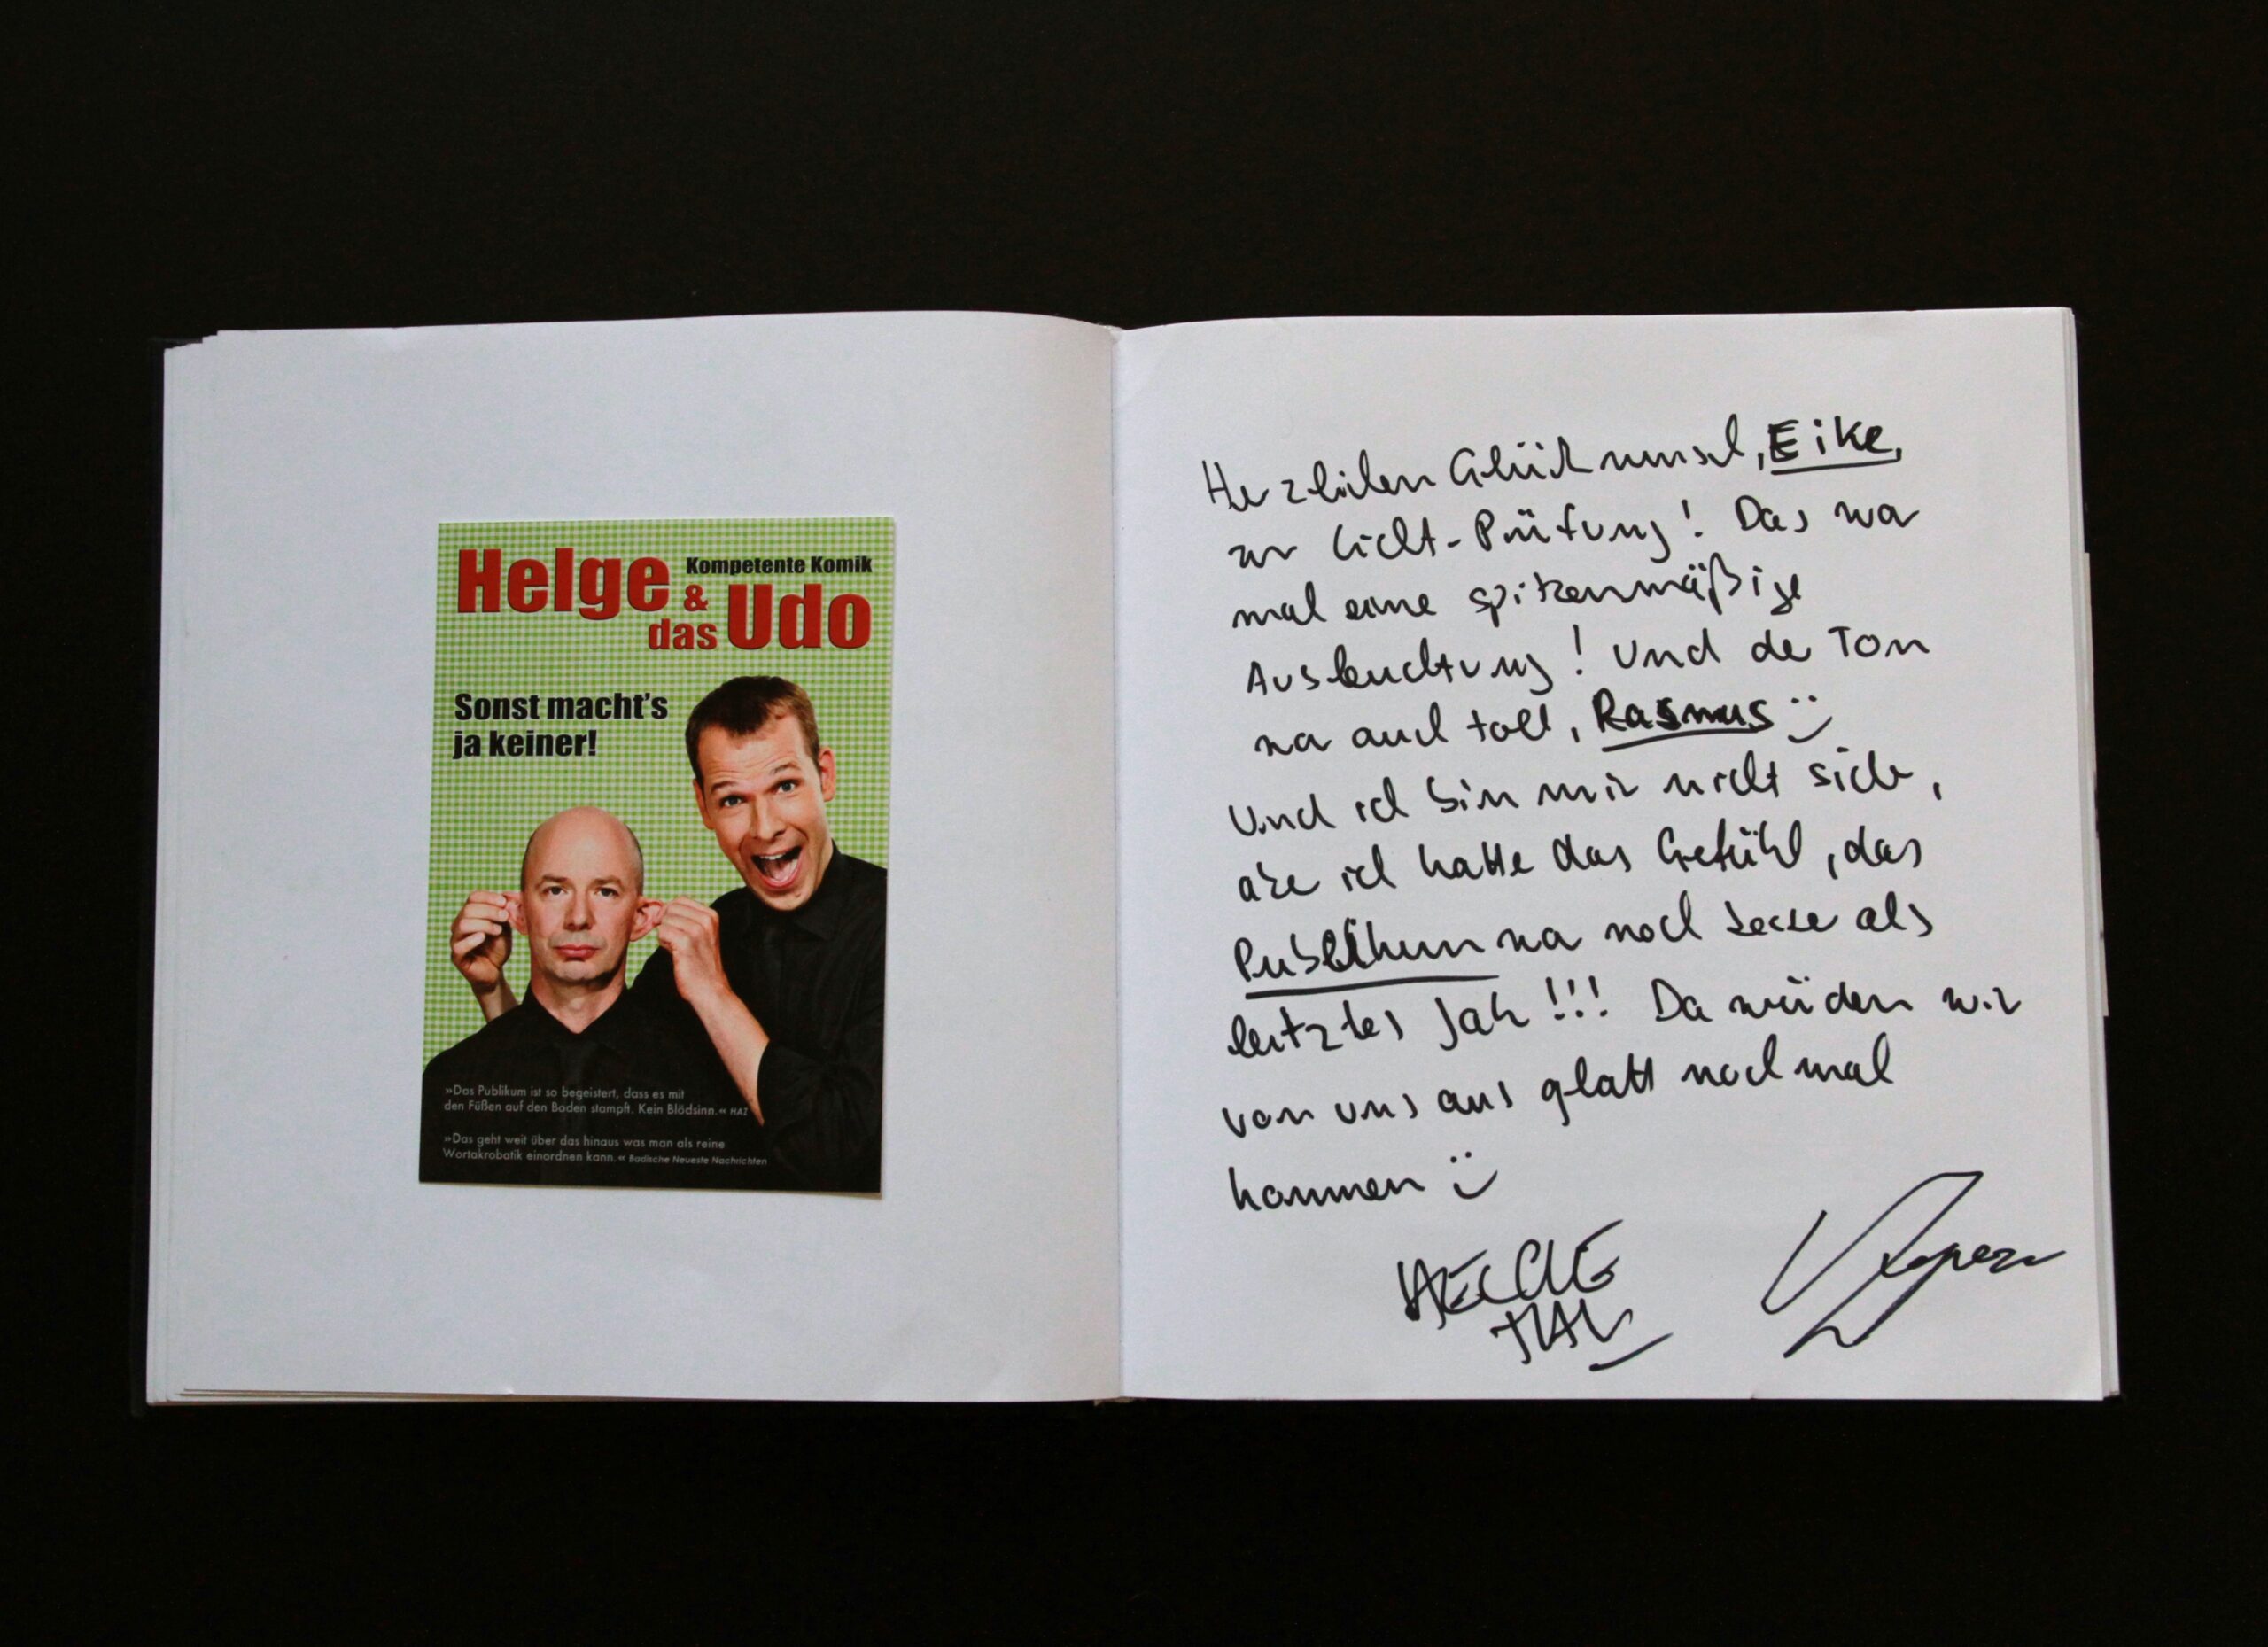 Helge Kompetente Komik
& das Udo
Sonst macht's
ja keiner!
»Das Publikum ist so begeistert, dass es mit
den Füßen auf den Boden stampft. Kein Blödsinn.« HAZ
»Das geht weit über das hinaus was man als reine
Wortakrobatik einordnen kann.« Badische Neueste Nachrichten
Herzlichen Glückwunsch, Eike,
zur Licht-Prüfung! Das war
mal eine spitzenmäßige
Ausleuchtung! Und der Ton
war auch toll, Rasmus
Und ich bin mir nicht sicher,
aber ich hatte das Gefühl, das
Publikum war noch besser als
letztes Jahr!!! Da würden wir
von uns aus glatt nochmal
kommen
HELGE